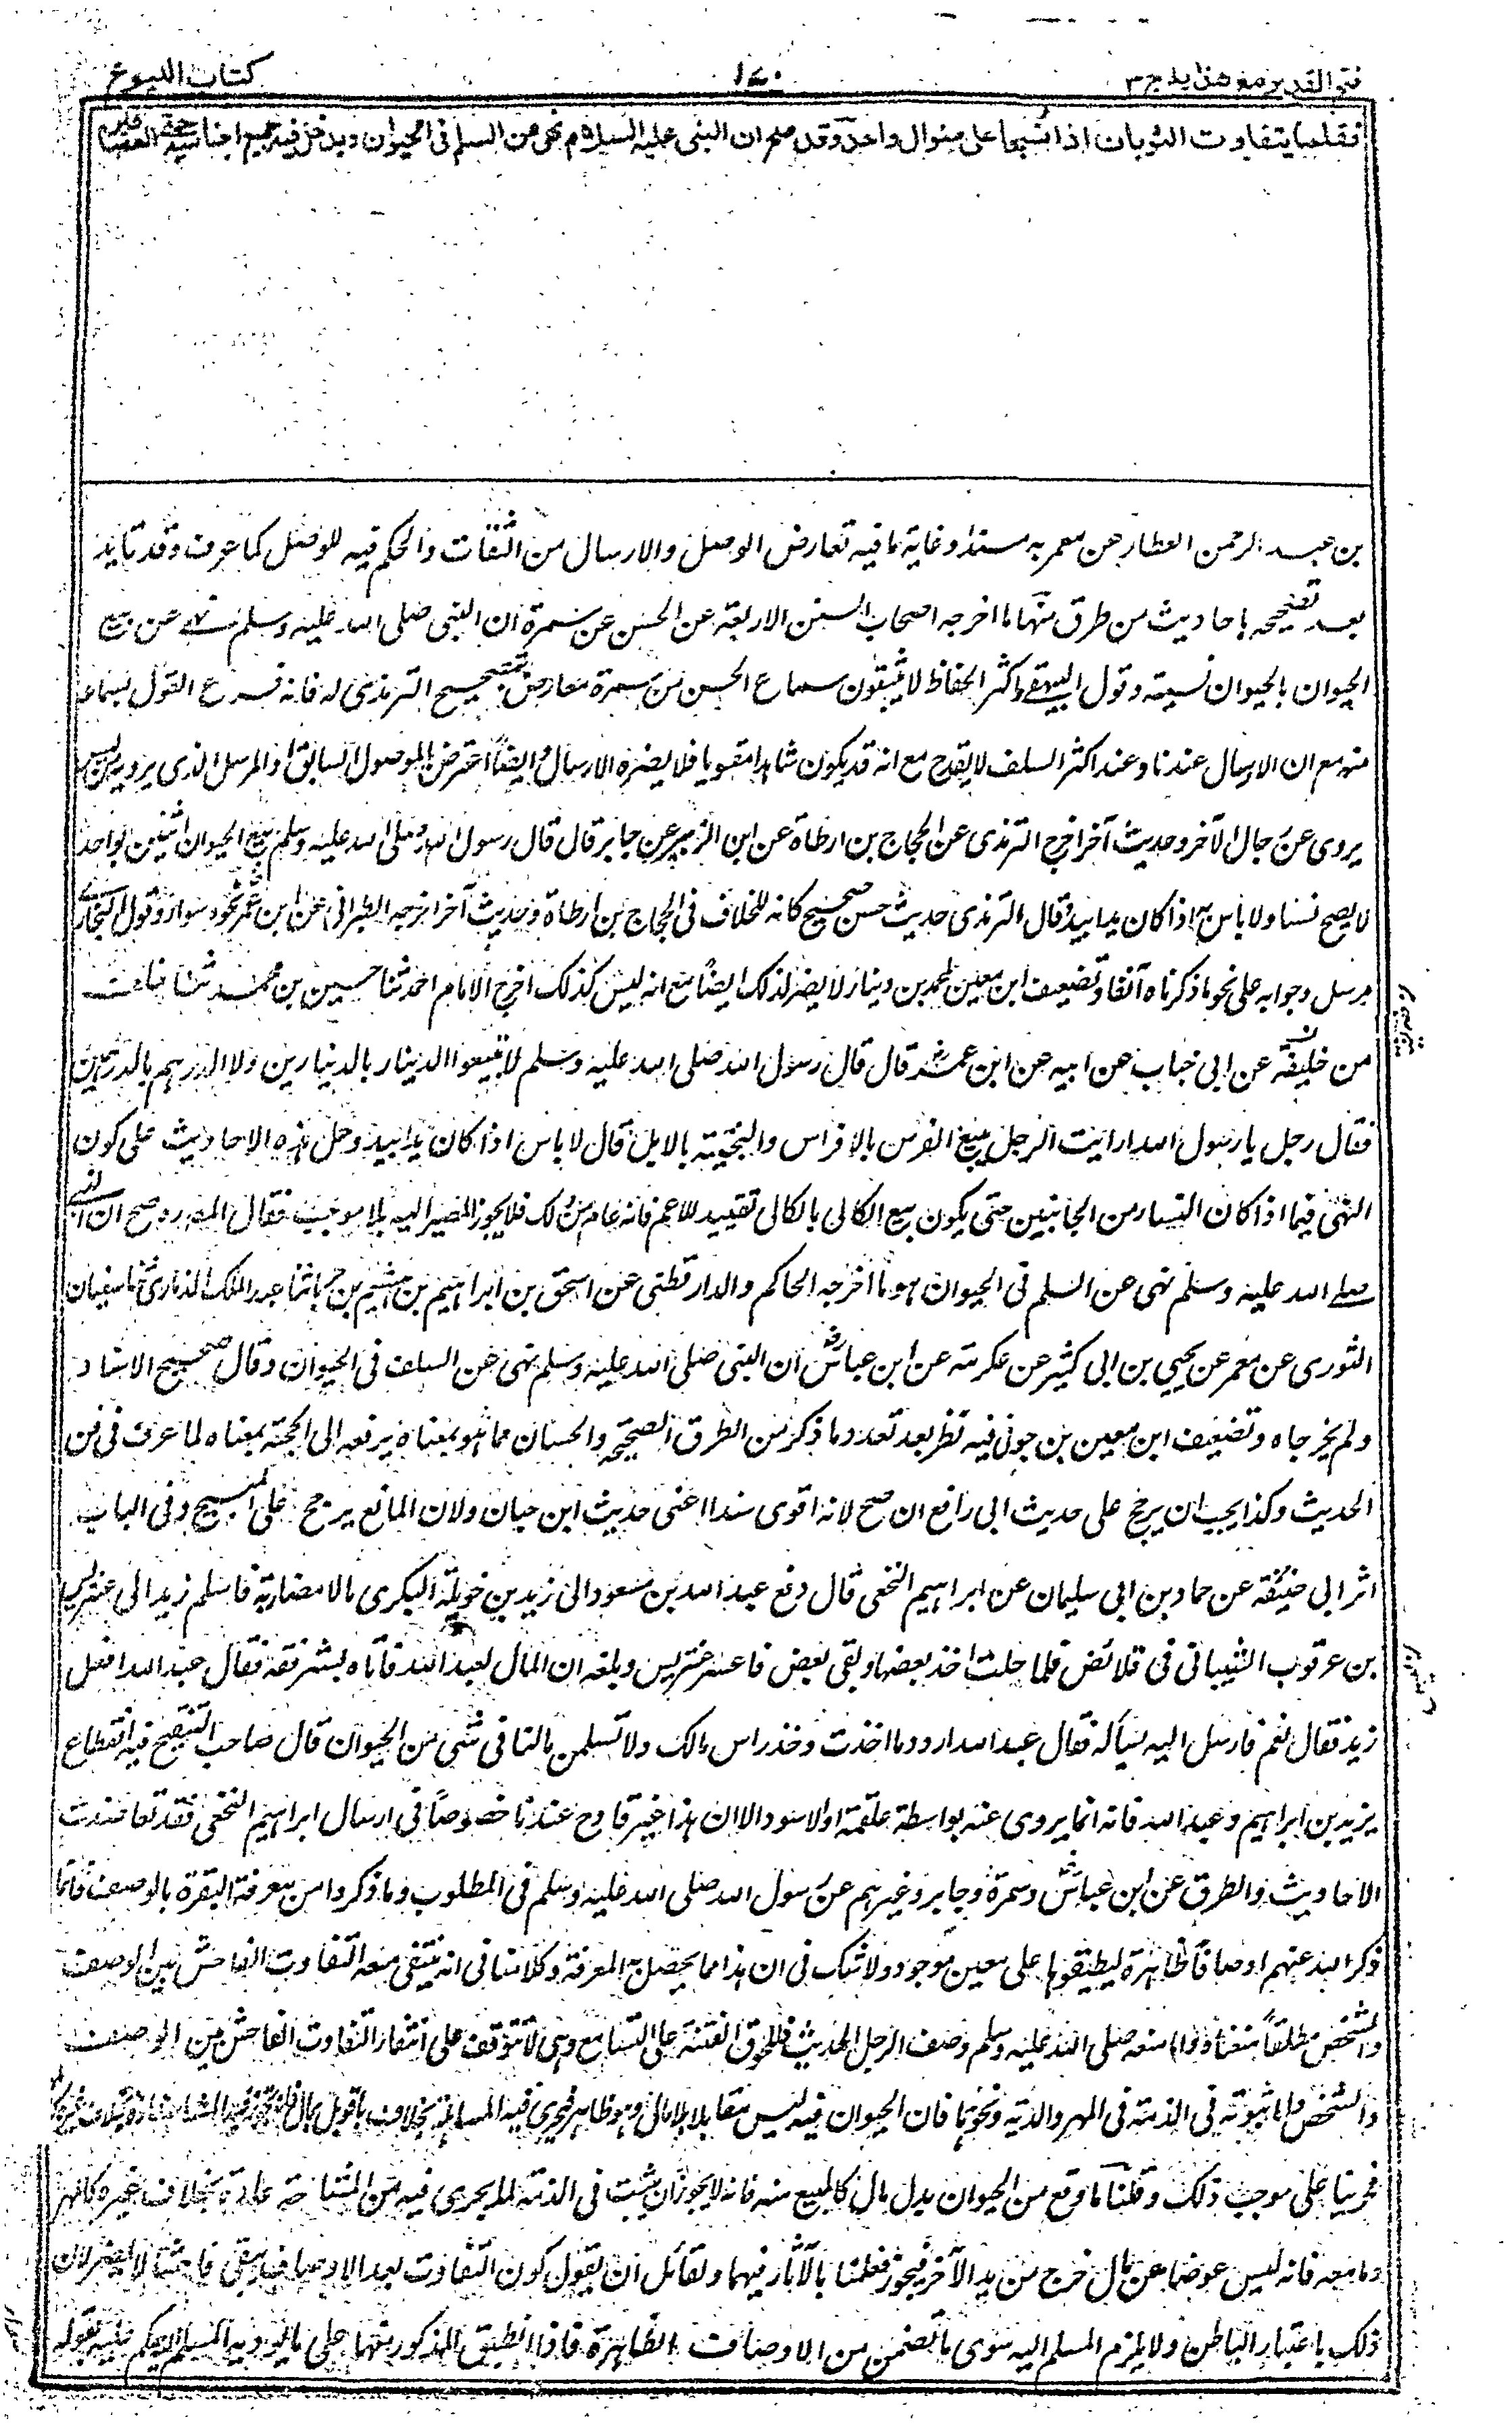 فتح القدير مع هدايه ج ٣
١٧٠
كتاب البيوع
فقلما يتفاوت الثوبان اذا نسجا على منوال واحد وقد صح ان النبى عليه السلام نهى عن السلم فى الحيوان ويدخل فيه جميع اجناسه حتى العصافير
بن عبد الرحمن العطار عن معمر به مسندا وغاية ما فيه تعارض الوصل والارسال من الثقات والحكم فيه للوصل كما عرف وقد تايد
بعد تصحيحه باحاديث من طرق منها ما اخرجه اصحاب السنن الاربعة عن الحسن عن سمرة ان النبى صلى الله عليه وسلم نهى عن بيع
الحيوان بالحيوان نسيئة وقول البيهقى واكثر الحفاظ لا يثبتون سماع الحسن من سمرة معارض بتصحيح الترمذى له فانه فرع القول بسماعه
منه مع ان الارسال عندنا وعند اكثر السلف لا يقدح مع انه قد يكون شاهدا مقويا فلا يضره الارسال وايضا اعترض بالموصول السابق اذ المرسل الذى يرويه من ليس
يروى عن رجال الآخر وحديث آخر اخرج الترمذى عن الحجاج بن ارطاة عن ابن الزبير عن جابر قال قال رسول الله صلى الله عليه وسلم بيع الحيوان اثنين بواحد
لا يصح نسئا ولا باس به اذا كان يدا بيد وقال الترمذى حديث حسن صحيح كانه للخلاف فى الحجاج بن ارطاة وحديث آخر اخرجه الطبرانى عن ابن عمر نحوه سواء وقول البخارى
مرسل وجوابه على نحو ما ذكرناه آنفا وتضعيف ابن معين لمحمد بن دينار لا يضر لذلك ايضا مع انه ليس كذلك اخرج الامام احمد ثنا حسين بن محمد ثنا خلف
من خليفة عن ابى جناب عن ابيه عن ابن عمر قال قال رسول الله صلى الله عليه وسلم لا تبيعوا الدينار بالدينارين ولا الدرهم بالدرهمين
فقال رجل يا رسول الله ارايت الرجل يبيع الفرس بالافراس والبختية بالابل قال لا باس اذا كان يدا بيد وحمل هذه الاحاديث على كون
النهى فيما اذا كان النساء من الجانبين حتى يكون بيع الكالى بالكالى تقييد للاعم فانه عام من ذلك فلا يجوز المصير اليه بلا موجب فقال المصه وصح ان النبى
صلى الله عليه وسلم نهى عن السلم فى الحيوان هو ما اخرجه الحاكم والدارقطنى عن اسحق بن ابراهيم بن جوتى ثنا عبد الملك الذمارى ثنا سفيان
الثورى عن معمر عن يحيى بن ابى كثير عن عكرمة عن ابن عباس ان النبى صلى الله عليه وسلم نهى عن السلف فى الحيوان وقال صحيح الاسناد
ولم يخرجاه وتضعيف ابن معين بن جوتى فيه نظر بعد تعدد ما ذكر من الطرق الصحيحة والحسان مما هو بمعناه يرفعه الى الحجة بمعناه لما عرف فى فن
الحديث وكذا يجب ان يرجح على حديث ابى رافع ان صح لانه اقوى سندا اعنى حديث ابن حبان ولان المانع يرجح على المبيح وفى الباب
اثر ابى حنيفة عن حماد بن ابى سليمان عن ابراهيم النخعى قال دفع عبد الله بن مسعود الى زيد بن خويلة البكرى مالا مضاربة فاسلم زيد الى عتريس
بن عرقوب الشيبانى فى قلائص فلما حلت اخذ بعضها وبقى بعض فاعسر عتريس وبلغه ان المال لعبد الله فاتاه يسترفقه فقال عبد الله افعل
زيد فقال نعم فارسل اليه يسأله فقال عبد الله اردد ما اخذت وخذ راس مالك ولا تسلمن مالنا فى شى من الحيوان قال صاحب التنقيح فيه انقطاع
يزيد بن ابراهيم وعبد الله فانه انما يروى عنه بواسطة علقمة او الاسود الا ان هذا غير قادح عندنا خصوصا فى ارسال ابراهيم النخعى فقد تعاضدت
الاحاديث والطرق عن ابن عباس وسمرة وجابر وغيرهم عن رسول الله صلى الله عليه وسلم فى المطلوب وما ذكروا من معرفة البقرة بالوصف فانما
ذكر الله عنهم اوصافا ظاهرة ليطبقوها على معين موجود ولا شك فى ان هذا مما يحصل به المعرفة وكلامنا فى انه ينتفى معه التفاوت الفاحش بين الوصف
والشخص مطلقا منعناه واما منعه صلى الله عليه وسلم وصف الرجل الحديث فللخوق الفتنة على السامع وهى لا تتوقف على انتفاء التفاوت الفاحش بين الوصف
والشخص واما ثبوته فى الذمة فى المهر والدية ونحوهما فان الحيوان فيه ليس مقابلا بالمال وهو ظاهر فيجرى فيه المساهلة بخلاف ما قوبل بمال
فجرينا على موجب ذلك وقلنا ما وقع من الحيوان بدل مال كالمبيع منه فانه لا يجوز ان يثبت فى الذمة لما يجرى فيه من المشاحة عادة بخلاف غيره كالمهر
وما معه فانه ليس عوضا عن مال خرج من يد الآخر فيجوز فعلمنا بالآثار فيهما ولقائل ان يقول كون التفاوت بعد الاوصاف يبقى فاحشا لا يضر لان
ذلك باعتبار الباطن ولا يلزم المسلم اليه سوى ما تضمن من الاوصاف الظاهرة فاذا انطبق المذكور منها على ما يوديه المسلم اليه حكم عليه بقبوله